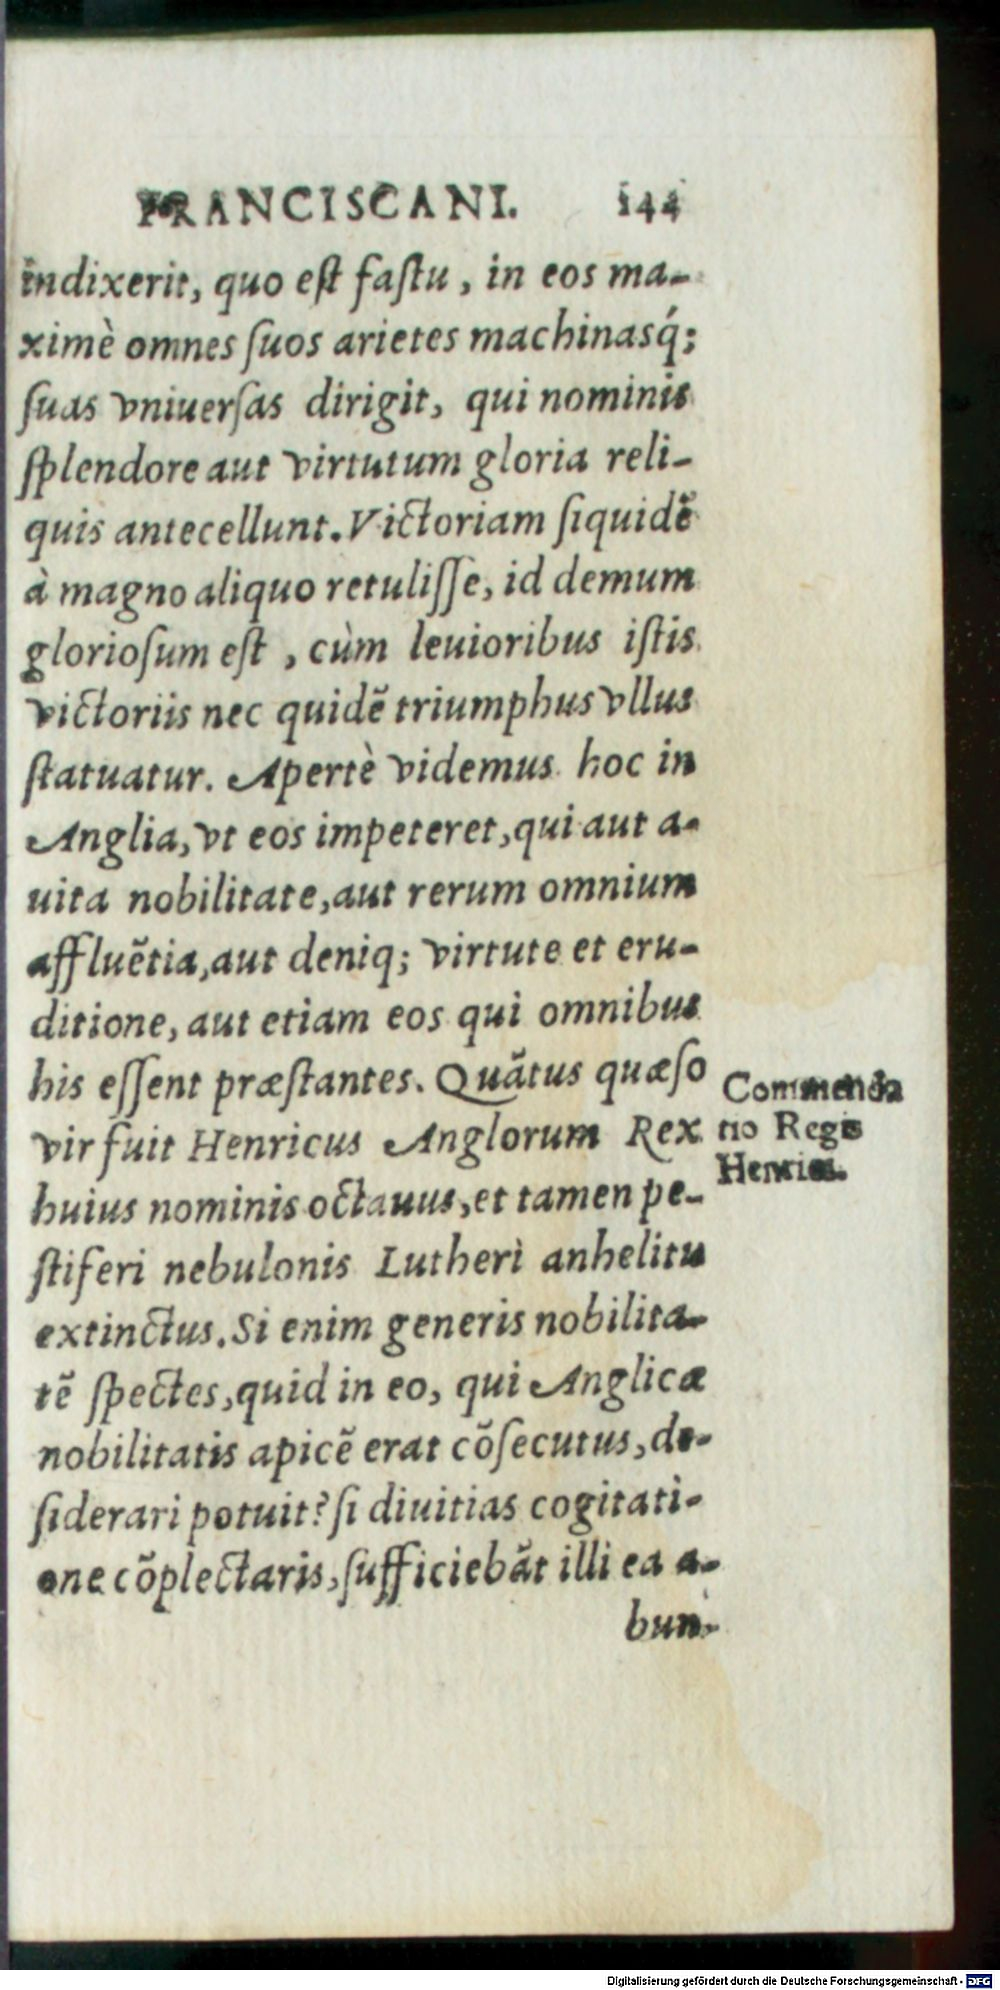 FRANCISCANI. 144
indixerit, quo est fastu, in eos ma-
ximè omnes suos arietes machinasq́;
suas vniuersas dirigit, qui nominis
splendore aut virtutum gloria reli-
quis antecellunt. Victoriam siquidē
à magno aliquo retulisse, id demum
gloriosum est, cùm leuioribus istis
victoriis nec quidē triumphus vllus
statuatur. Apertè videmus hoc in
Anglia, vt eos impeteret, qui aut a-
uita nobilitate, aut rerum omnium
affluētia, aut deniq; virtute et eru-
ditione, aut etiam eos qui omnibus
his essent præstantes. Quātus quæso
vir fuit Henricus Anglorum Rex
huius nominis octauus, et tamen pe-
stiferi nebulonis Lutheri anhelitu
extinctus. Si enim generis nobilita-
tē spectes, quid in eo, qui Anglicæ
nobilitatis apicē erat cōsecutus, de-
siderari potuit? si diuitias cogitati-
one cōplectaris, sufficiebāt illi ea a-
bun-
Commenda
tio Regis
Henrici.
Digitalisierung gefördert durch die Deutsche Forschungsgemeinschaft - DFG